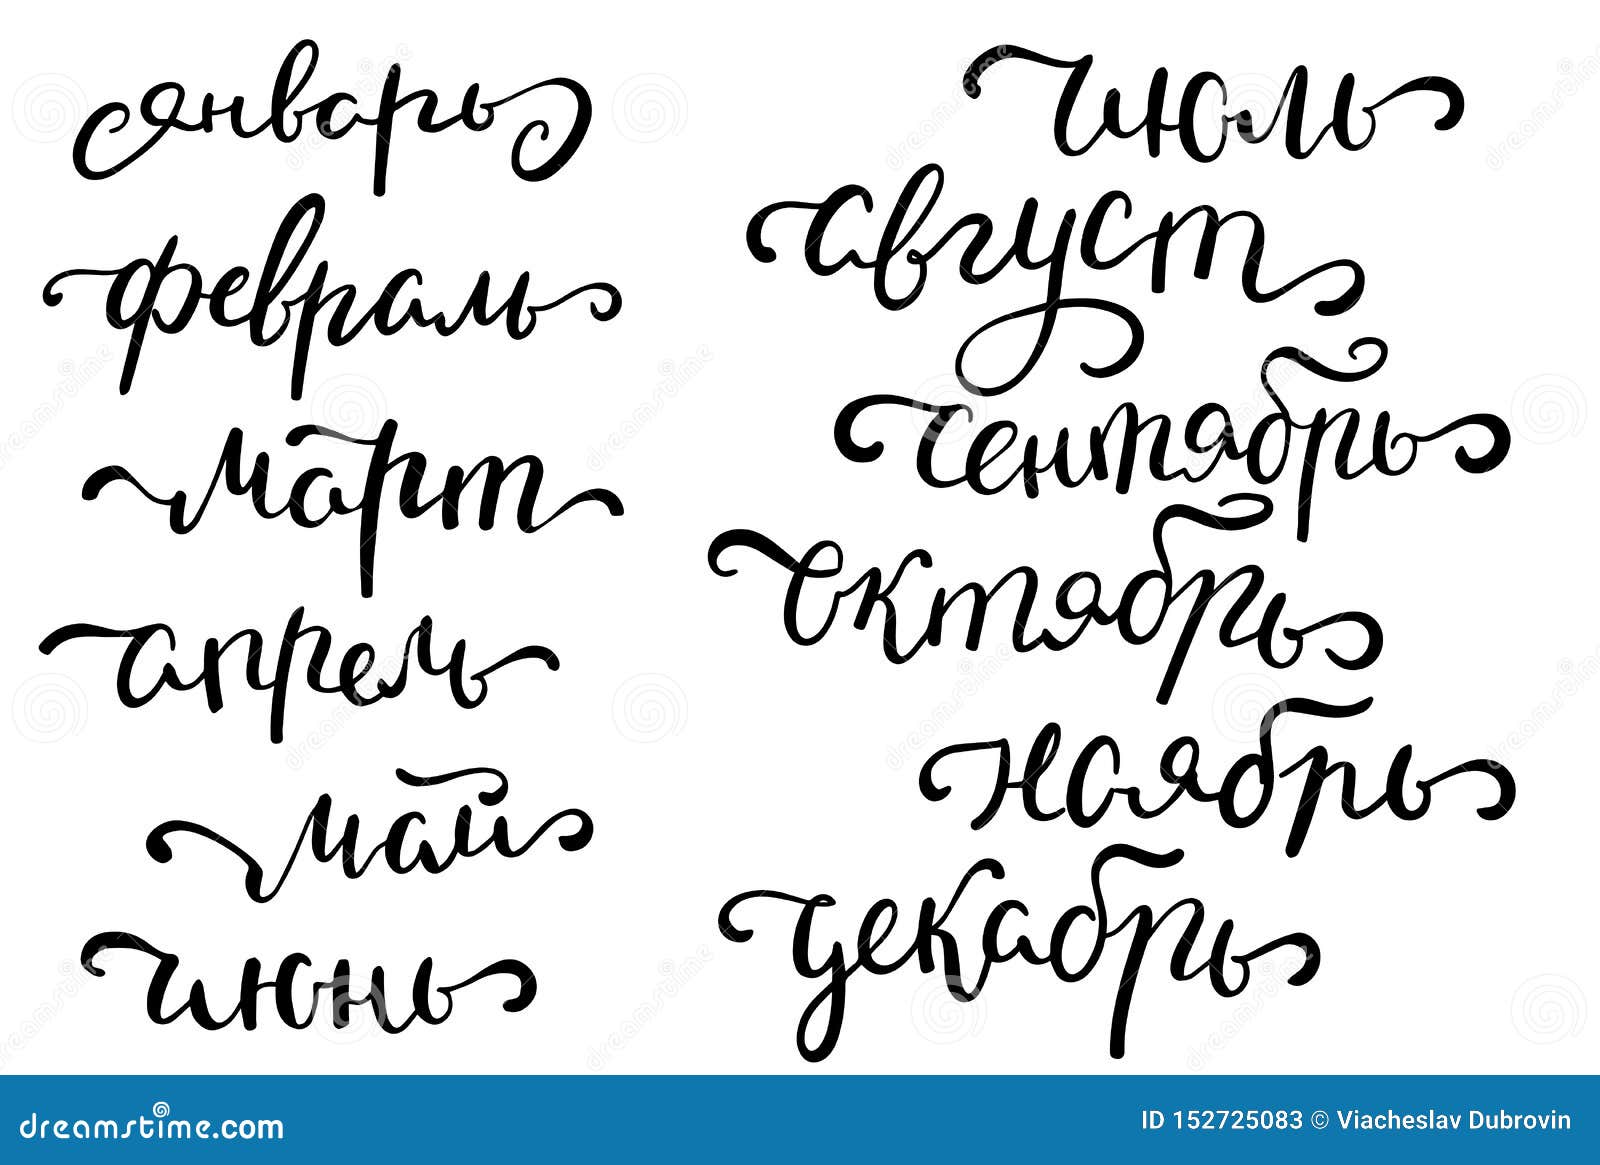 январь
февраль
март
апрель
май
июнь
июль
август
сентябрь
октябрь
ноябрь
декабрь
dreamstime.com
ID 152725083 © Viacheslav Dubrovin